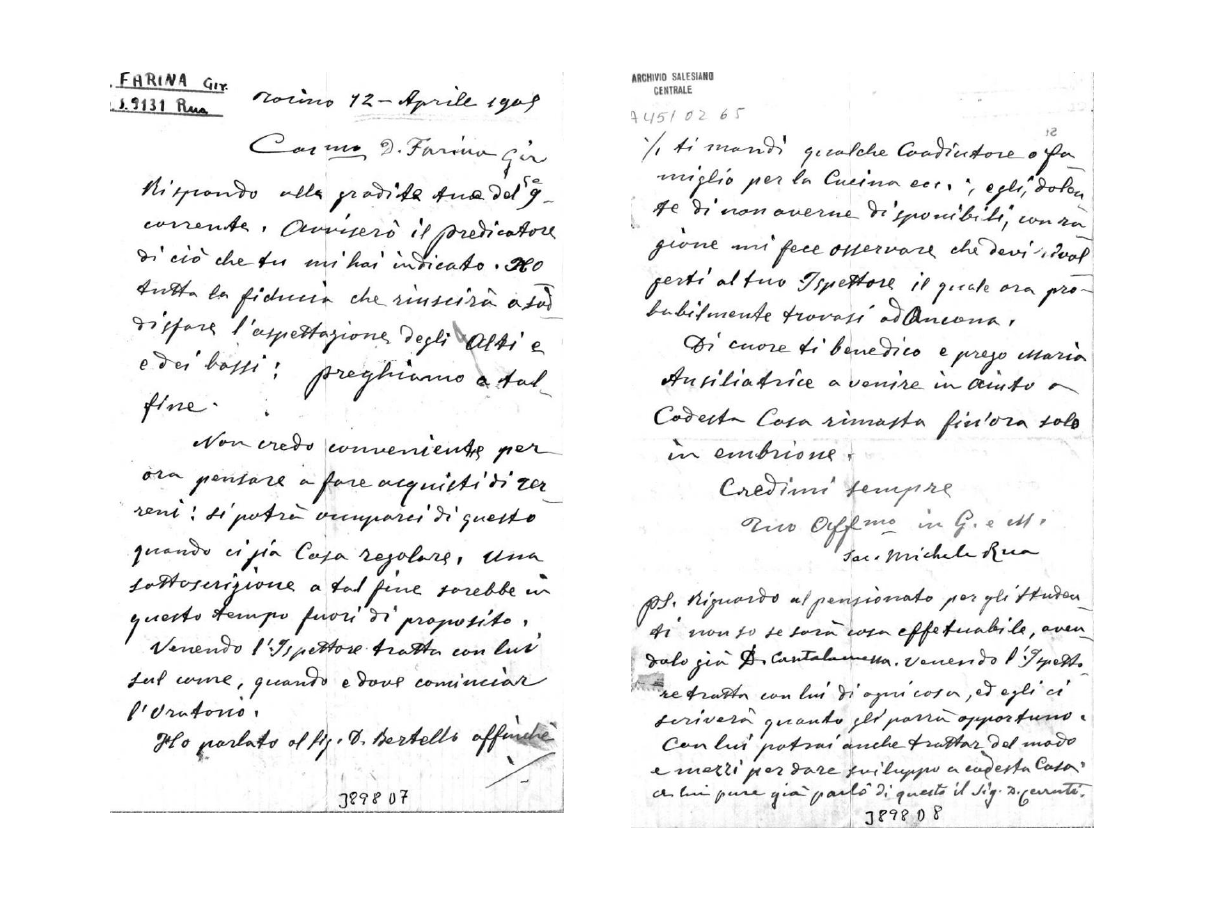 FARINA Gir.
S.9131 Rua
Torino 12 - Aprile 1905
Car.mo D. Farina Gir
Rispondo alla gradita tua del 9
corrente. Avviserò il predicatore
di ciò che tu mi hai indicato. Ho
tutta la fiducia che riuscirà a sod
disfare l'aspettazione degli Alti e
e dei bassi: preghiamo a tal
fine.
Non credo conveniente per
ora pensare a fare acquisti di ter
reni: si potrà occuparci di questo
quando ci sia Casa regolare. Una
sottoscrizione a tal fine sarebbe in
questo tempo fuori di proposito.
Venendo l'Ispettore tratta con lui
sul come, quando e dove cominciar
l'Oratorio.
Ho parlato al Sig. D. Bertello affinchè
J898 D7
ARCHIVIO SALESIANO
CENTRALE
A451 02 65
ti mandi qualche Coadiutore o fa
miglio per la Cucina ecc.; egli, dolen
te di non averne disponibili, con ra
gione mi fece osservare che devi rivol
gerti al tuo Ispettore il quale ora pro-
babilmente trovasi ad Ancona.
Di cuore ti benedico e prego Maria
Ausiliatrice a venire in aiuto a
Codesta Casa rimasta fin'ora solo
in embrione.
Credimi sempre
Tuo Aff.mo in G. e M.
Sac. Michele Rua
PS. Riguardo al pensionato per gli studen
ti non so se sarà cosa effetuabile, aven
dolo già D. Cantalamessa. Venendo l'Ispetto
re tratta con lui di ogni cosa, ed egli ci
scriverà quanto gli parrà opportuno.
Con lui potrai anche trattar del modo
e mezzi per dare sviluppo a codesta Casa:
a lui pure già parlò di questo il Sig. D. Cerruti.
J898 D8